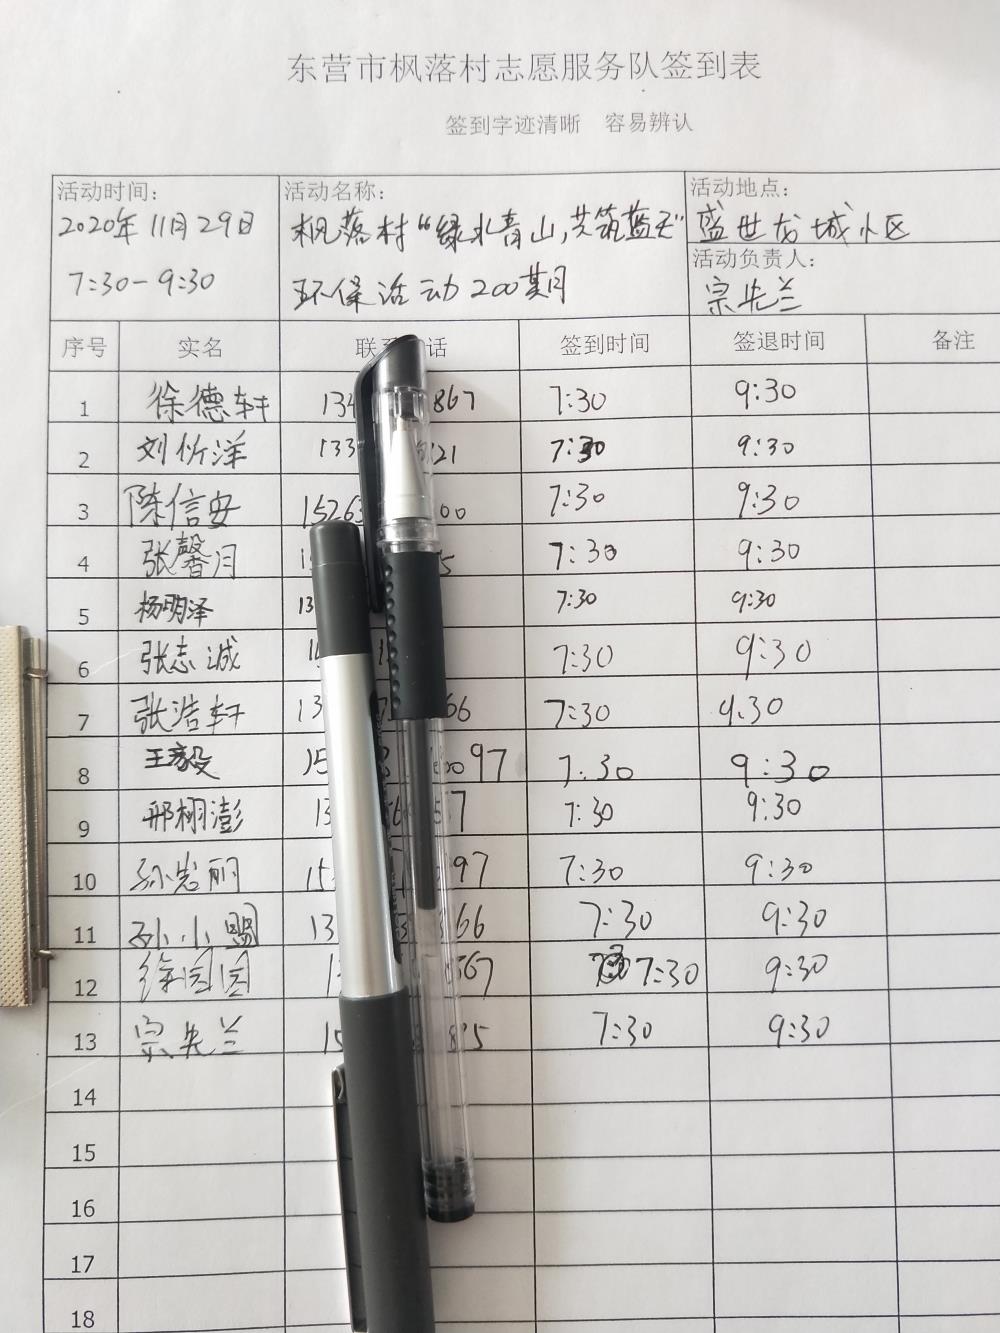 东营市枫落村志愿服务队签到表
签到字迹清晰 容易辨认
活动时间: 活动名称: 活动地点:
2020年11月29日 枫落村“绿水青山,共筑蓝天” 盛世龙城小区
7:30-9:30 环保活动200期 活动负责人:
宗先兰
序号 实名 联 话 签到时间 签退时间 备注
1 徐德轩 134 867 7:30 9:30
2 刘忻洋 133 121 7:30 9:30
3 陈信安 15263 00 7:30 9:30
4 张馨月 7:30 9:30
5 杨明泽 13 7:30 9:30
6 张志诚 7:30 9:30
7 张浩轩 13 66 7:30 9:30
8 王毅 15 97 7:30 9:30
9 邢栩澎 13 7 7:30 9:30
10 孙岩丽 15 97 7:30 9:30
11 孙小盟 13 66 7:30 9:30
12 徐园园 567 7:30 9:30
13 宗先兰 15 7:30 9:30
14
15
16
17
18